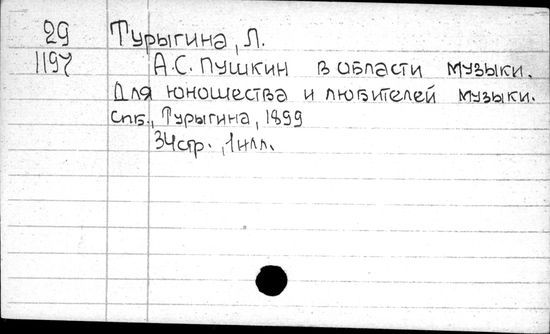 29 Турыгина, Л.
1197 А.С. Пушкин в области музыки.
Для юношества и любителей музыки.
Спб., Турыгина, 1899
34 стр., 1 илл.